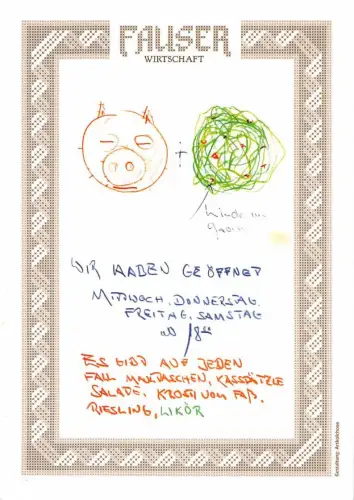 FAUSER
WIRTSCHAFT
+
WIR HABEN GEÖFFNET
MITTWOCH, DONNERSTAG,
FREITAG, SAMSTAG
ab 18⁰⁰
ES GIBT AUF JEDEN
FALL MAULTASCHEN, KÄSSPÄTZLE
SALADE, KROSTI VOM FAß,
RIESLING, LIKÖR
Gestaltung: Artkolchose